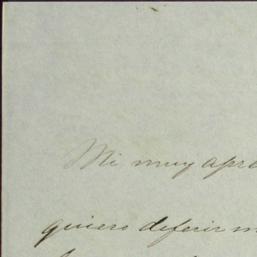 Mi muy apre
quiero deferir m